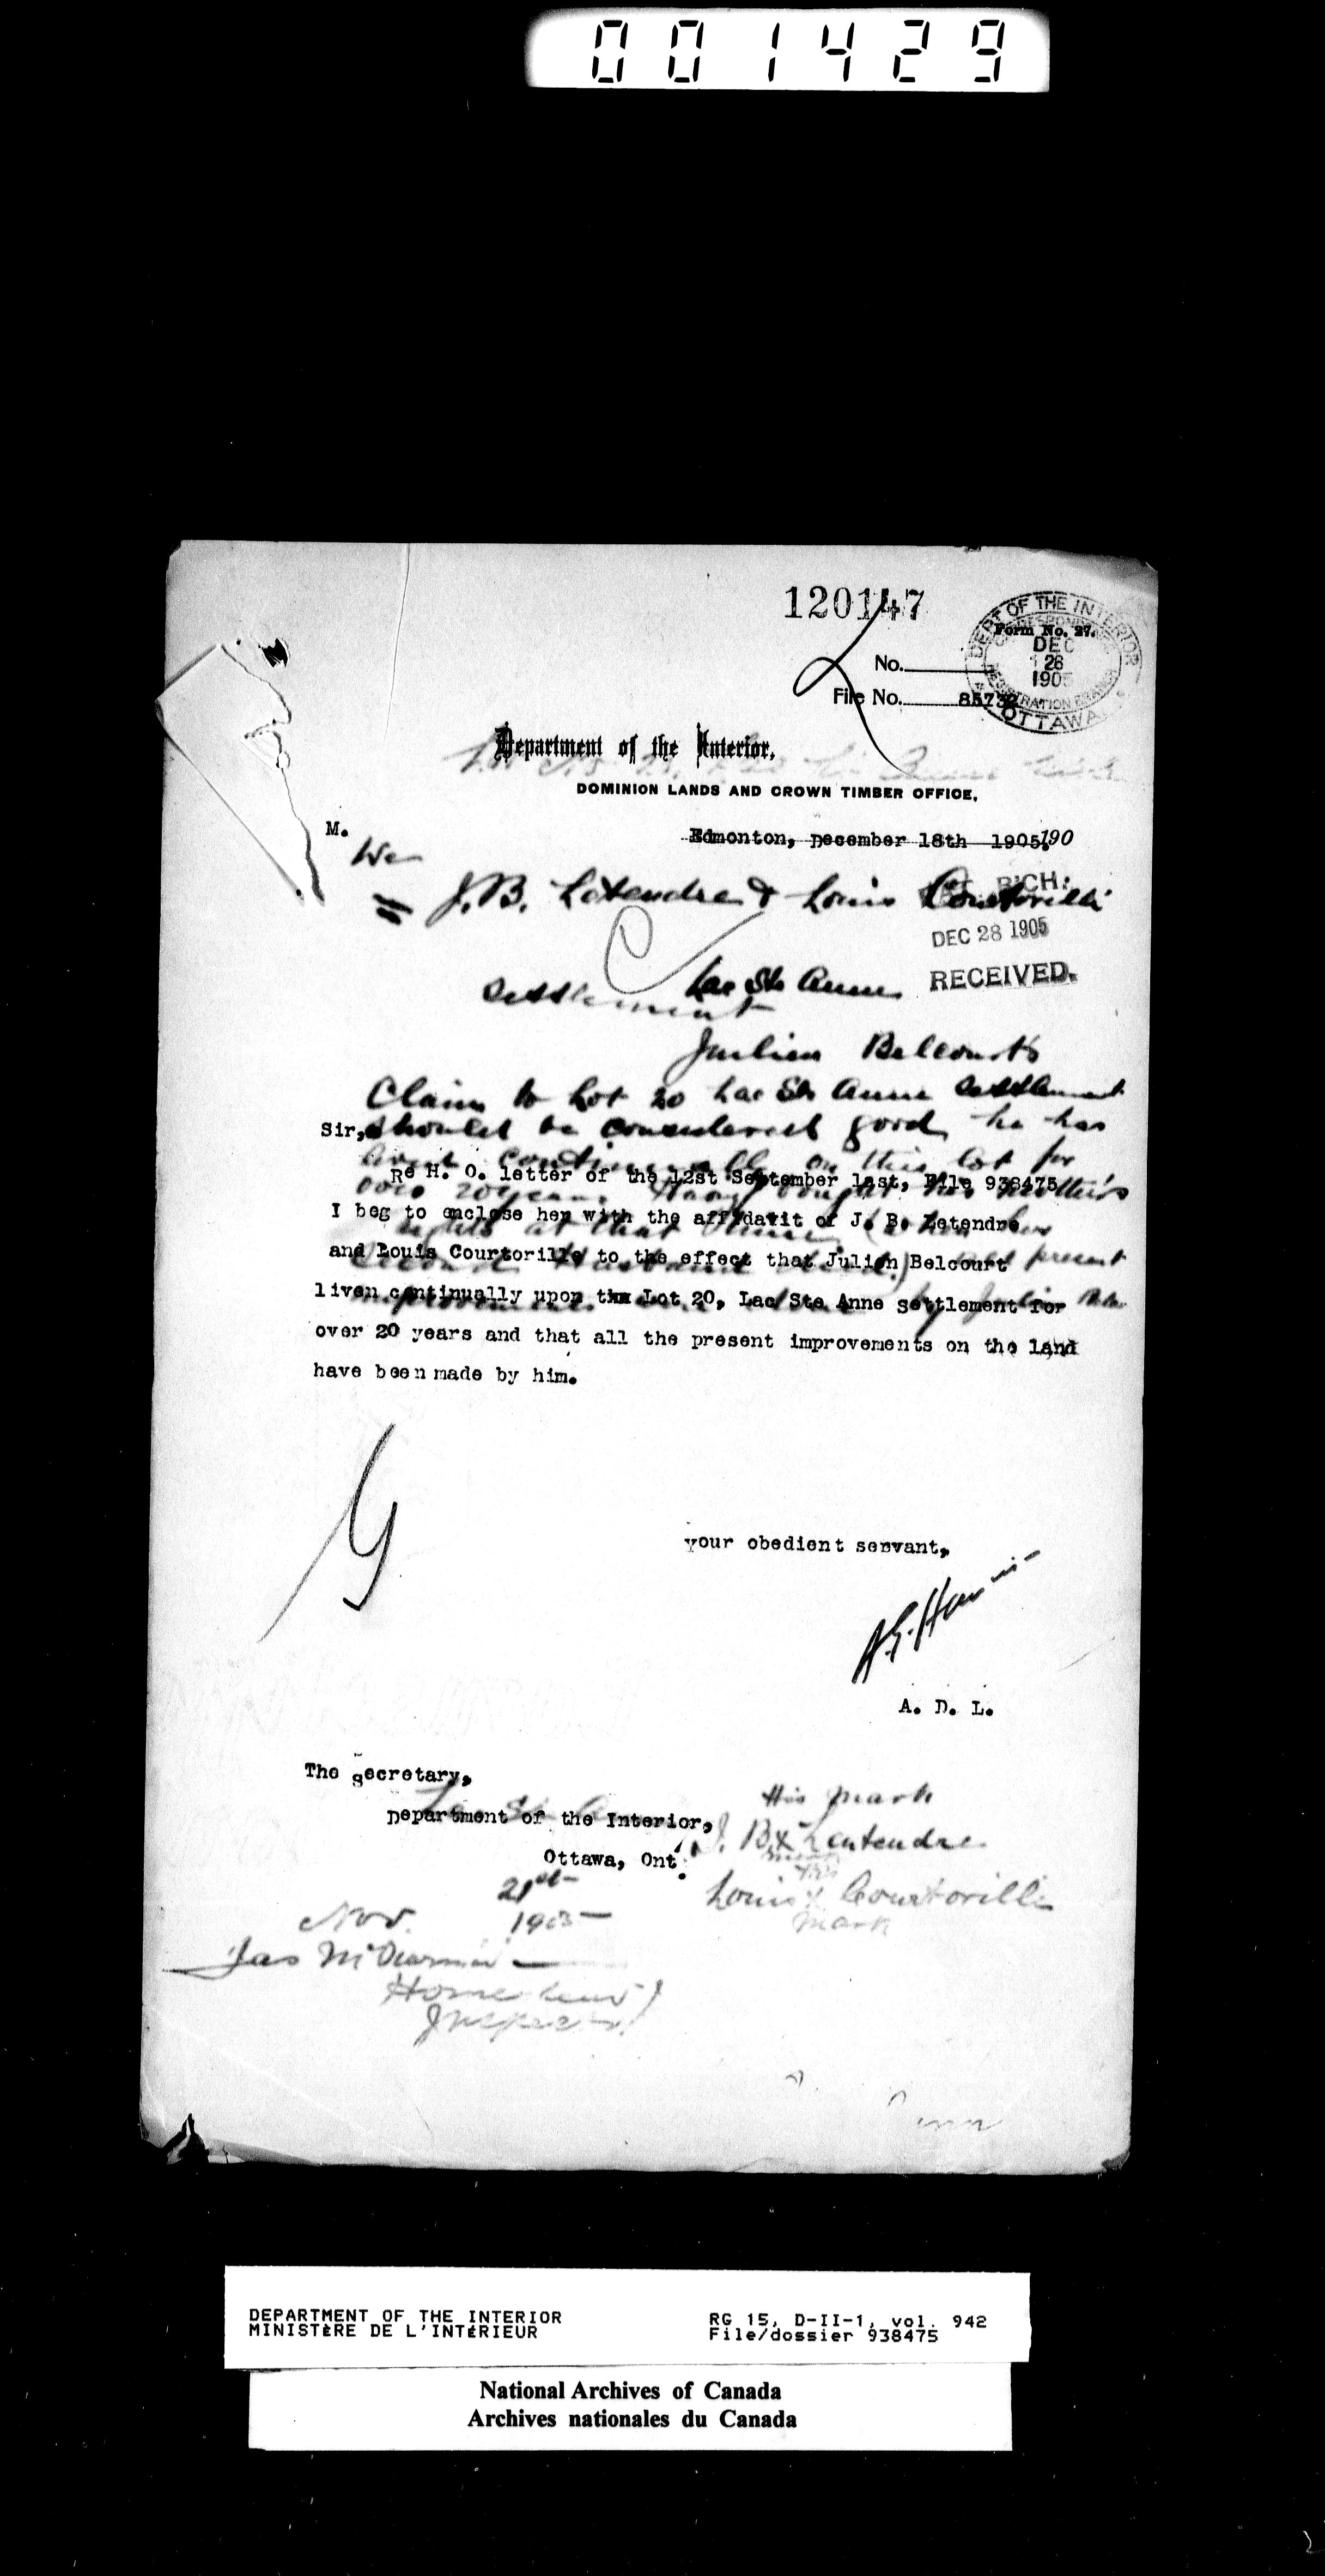 001429
120147
DEPT OF THE INTERIOR
Form No. 27.
DEC
28
1905
REGISTRATION BRANCH
OTTAWA
No.
File No. 85732
Department of the Interior,
DOMINION LANDS AND CROWN TIMBER OFFICE,
M.
Edmonton, December 18th 1905. 190
We
J.B. Letendre & Louis Courtorille
DEC 28 1905
Lac Ste Anne
RECEIVED.
settlement
Julien Belcourts
Claim to Lot 20 Lac Ste Anne settlement
Sir,
should be considered good, he has
continually on this lot for
Re H. O. letter of the 12st September last, File 938475
over 20 years
I beg to enclose her with the affidavit of J. B. Letendre
at that time
and Louis Courtorille to the effect that Julien Belcourt
present
liven continually upon the Lot 20, Lac Ste Anne settlement for
over 20 years and that all the present improvements on the land
have been made by him.
your obedient servant,
A. D. L.
The Secretary,
Department of the Interior,
Ottawa, Ont.
His mark
J. B. x Lentendre
Louis x Courtorille
mark
21st
Nov. 1905
Jas McDiarmid
Homestead
Inspector
DEPARTMENT OF THE INTERIOR
MINISTÈRE DE L'INTÉRIEUR
RG 15, D-II-1, vol. 942
File/dossier 938475
National Archives of Canada
Archives nationales du Canada